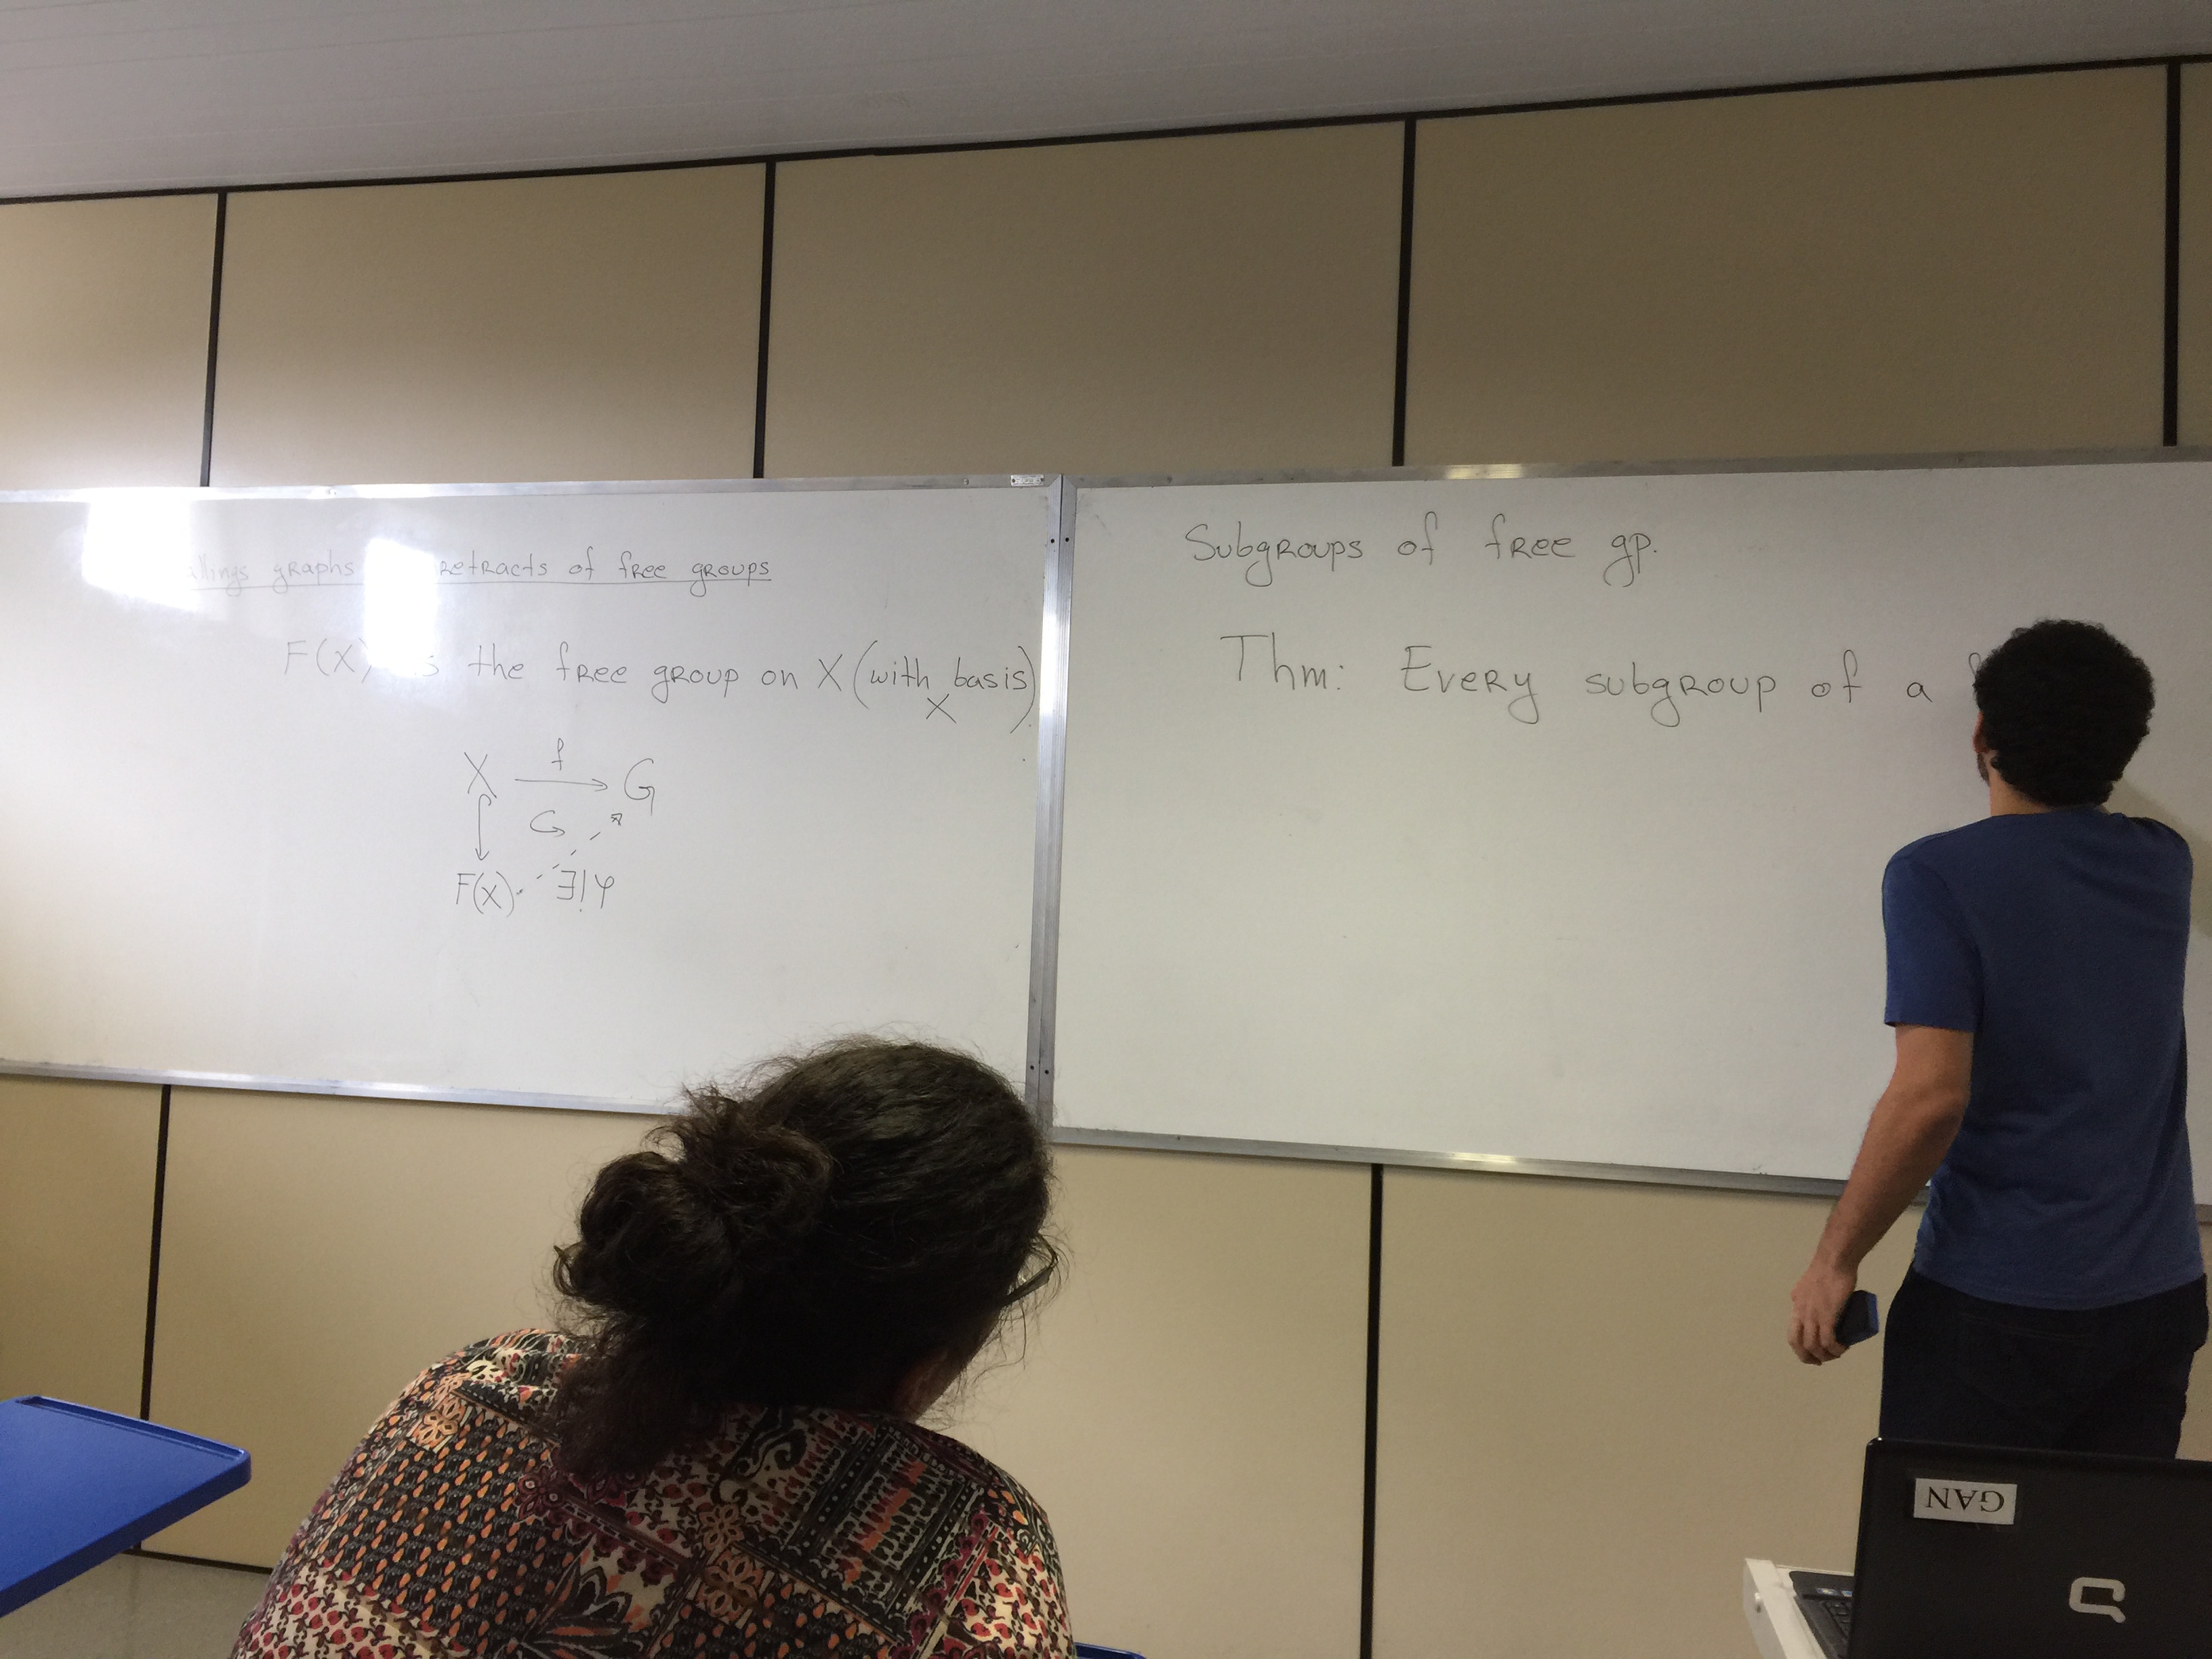 allings graphs retracts of free groups
F(X) is the free group on X (with basis X)
X f G
F(X) ∃!φ
Subgroups of free gp.
Thm: Every subgroup of a
GAN